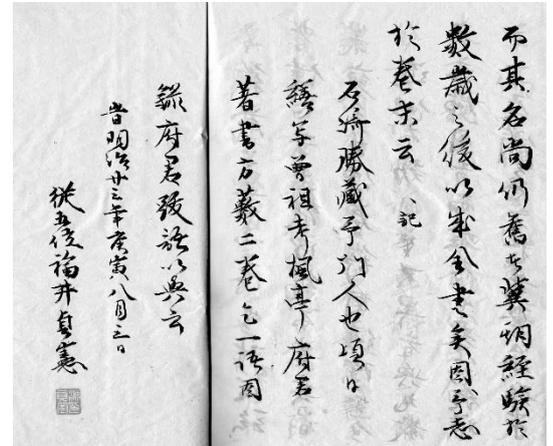 而其名尚仍舊者冀期經驗於
數歲之後以成全書矣因予志
於卷末云
記
石崎勝藏予門人也頃日
繕写曽祖考楓亭府君
著書方藪二卷乞一語因
錄府君跋語以與云
旹明治廿三年庚寅八月三日
從五位福井貞憲